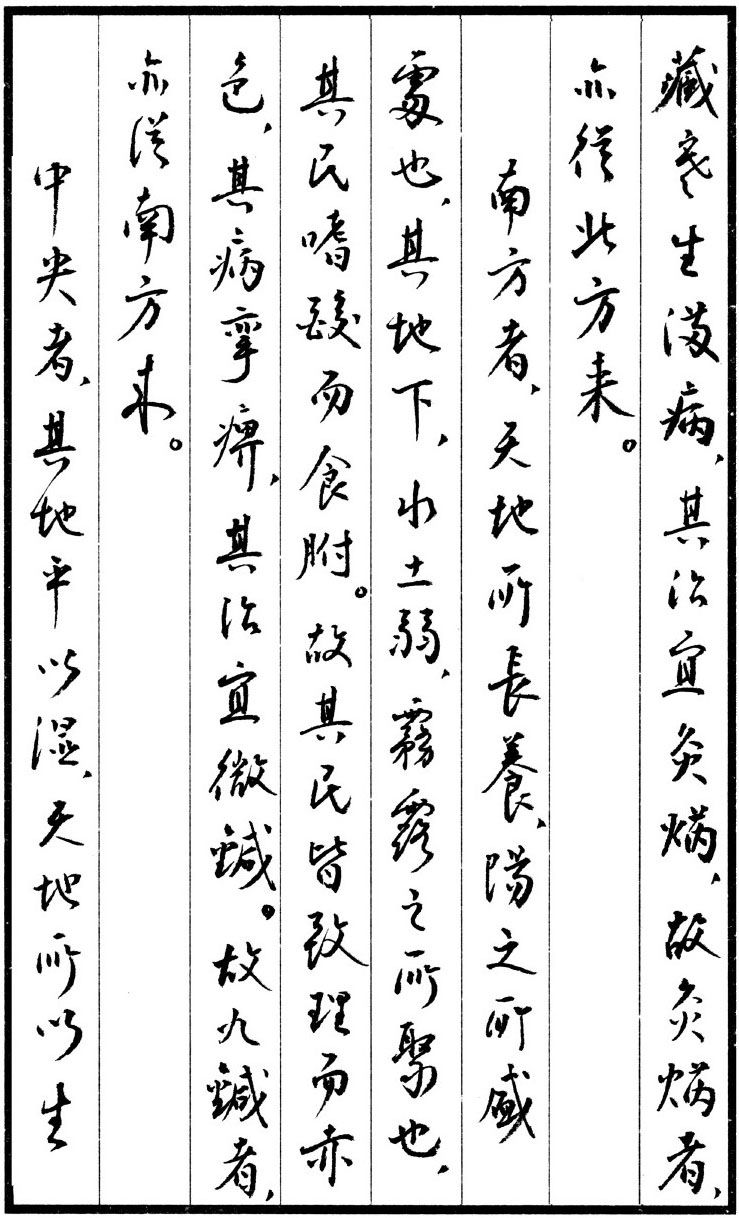 藏寒生满病，其治宜灸焫，故灸焫者，
亦從北方来。
南方者，天地所長養，陽之所盛
處也，其地下，水土弱，霧露之所聚也，
其民嗜酸而食胕。故其民皆致理而赤
色，其病挛痹，其治宜微鍼。故九鍼者，
亦從南方来。
中央者，其地平以湿，天地所以生